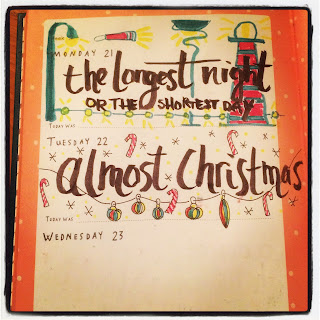 MONDAY 21
the longest night
OR THE SHORTEST DAY
TODAY WAS
TUESDAY 22
almost Christmas
TODAY WAS
WEDNESDAY 23